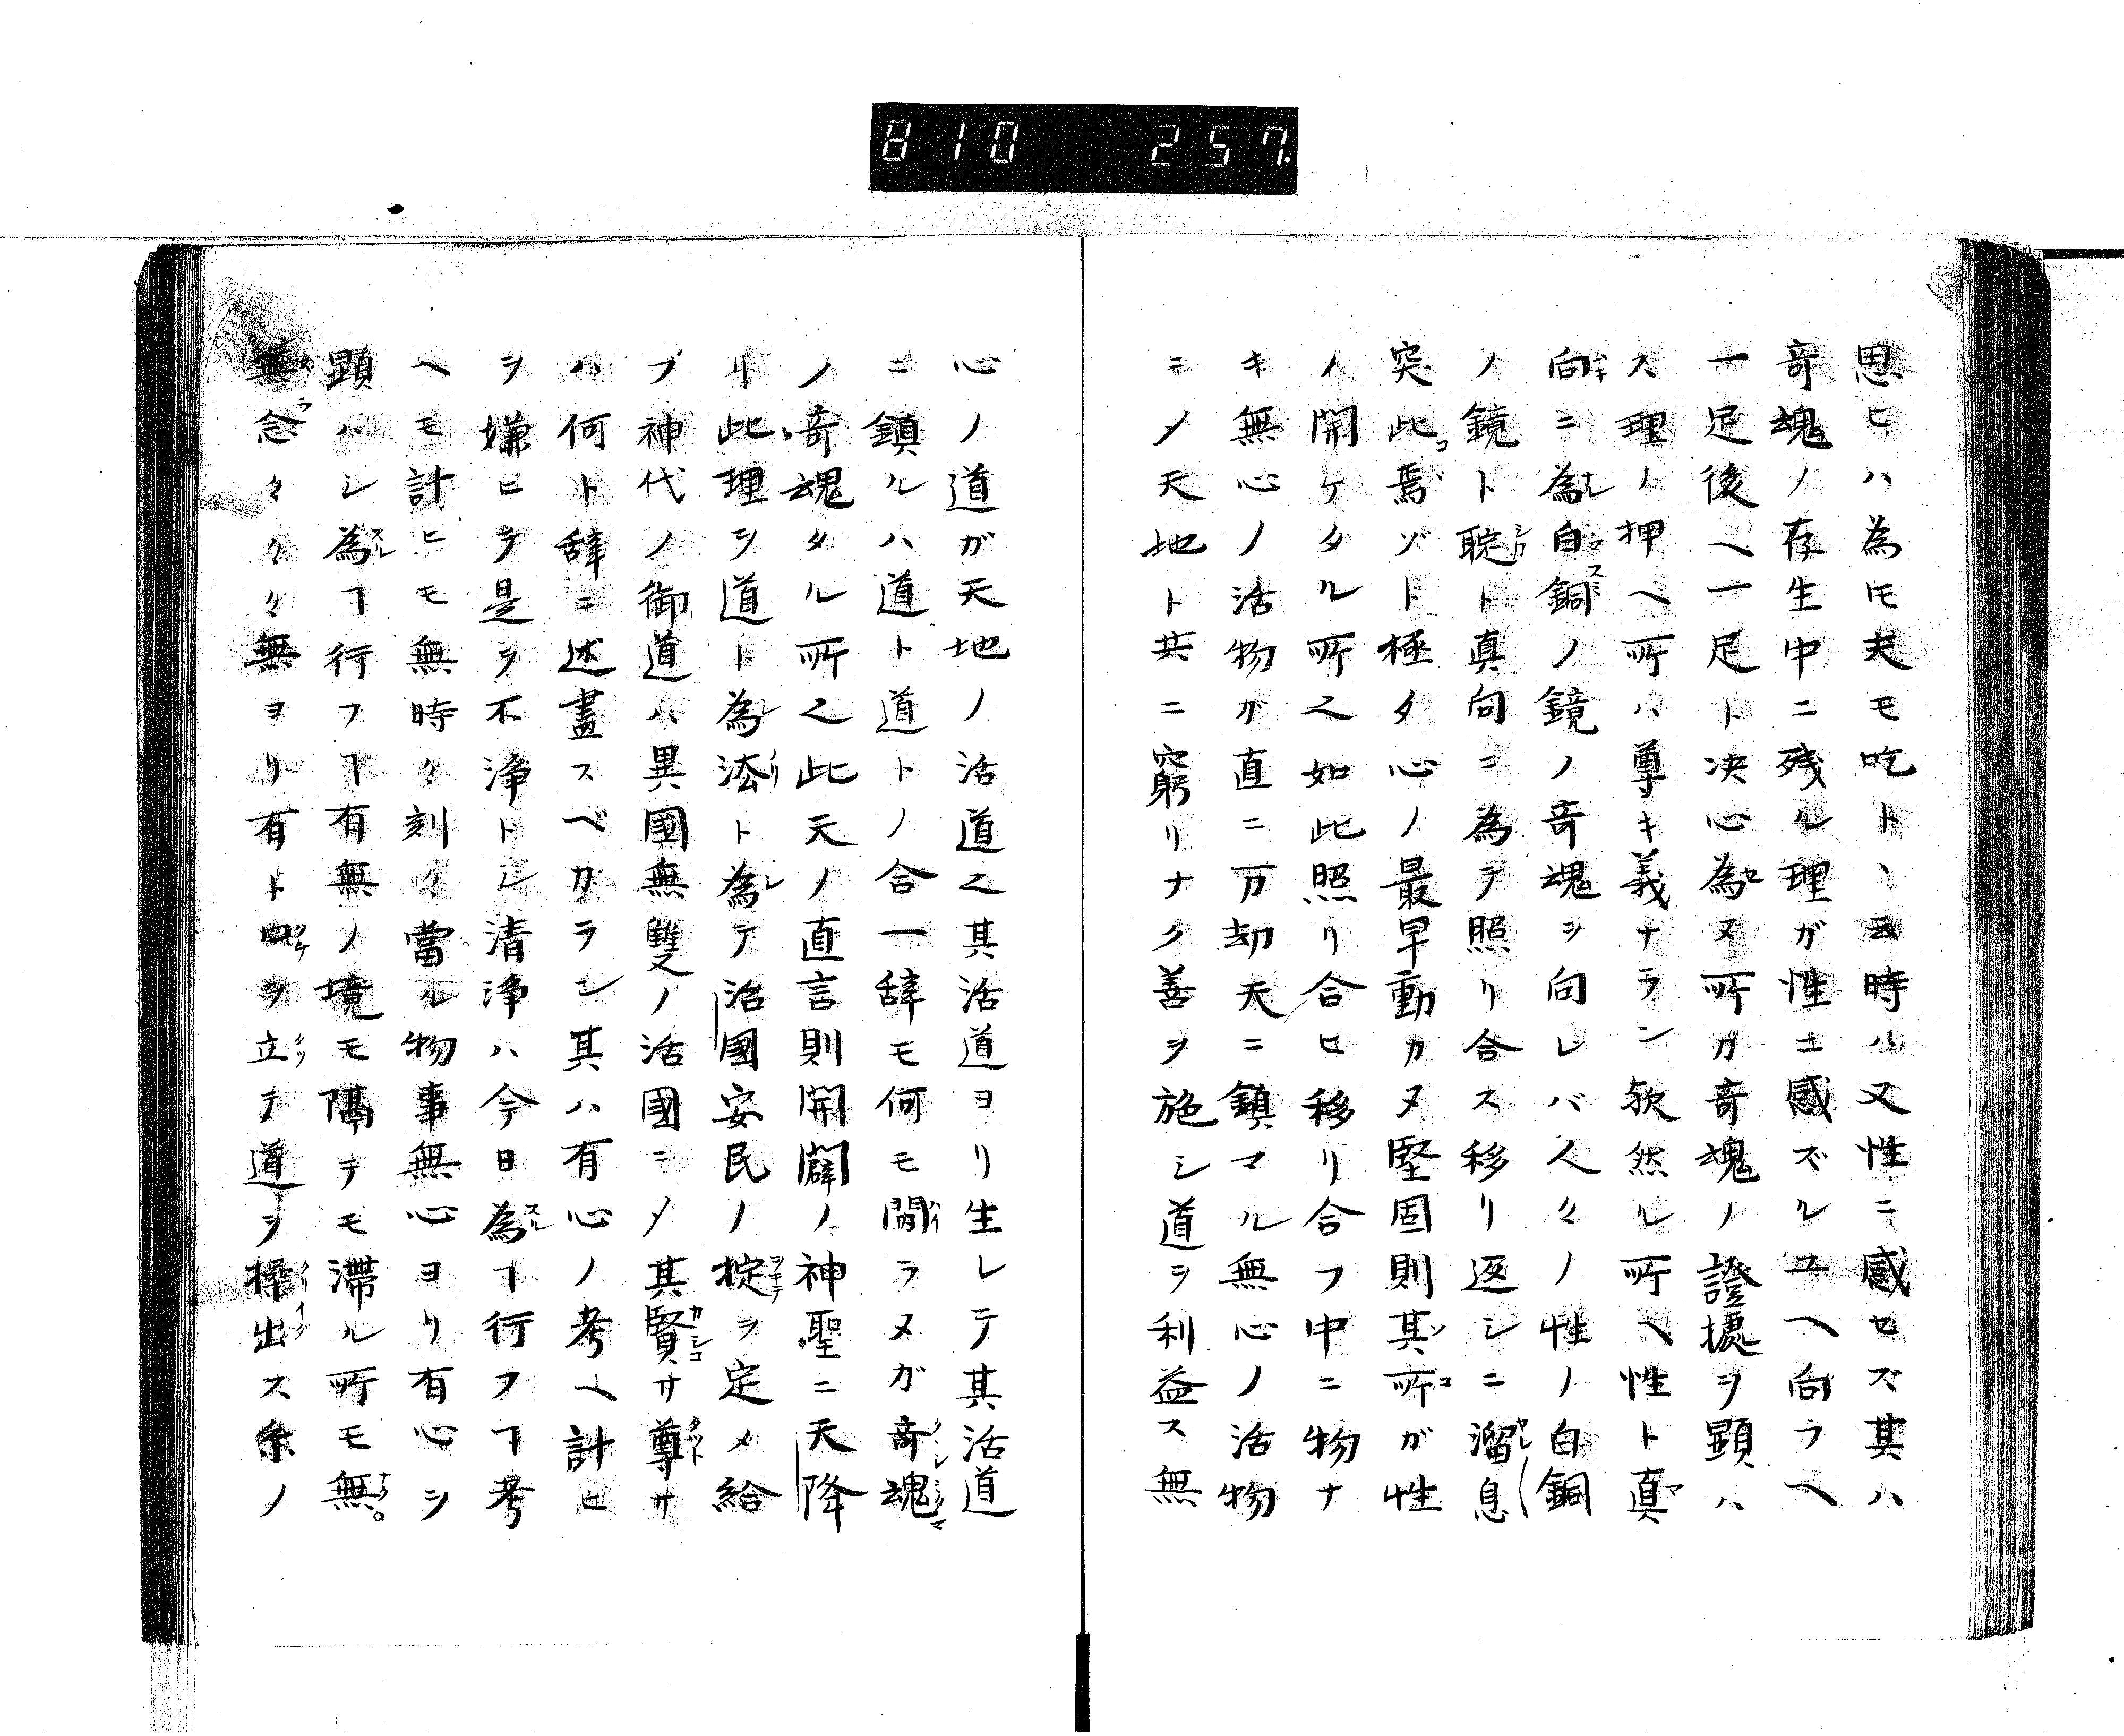 810 257.
思ヒハ為ㇳモ夫モ吃トヽ云時ハ又性ニ感セズ其ハ
竒魂ノ存生中ニ残ル理ガ性ニ感ズルユヘ向フヘ
一足後ヘ一足ト决心為ヌ所ガ竒魂ノ證㨿ヲ顕ハ
ス理ノ押ヘ所ハ尊キ義ナラン欤然ル所ヘ性ト真
向ニ為白銅ノ鏡ノ竒魂ヲ向レバ人々ノ性ノ白銅
ノ鏡ト聢ト真向ニ為テ照リ合ス移リ返シニ溜息
突此焉ゾト極タ心ノ最早動カヌ堅固則其所ガ性
ノ開ケタル所之如此照リ合ヒ移リ合フ中ニ物ナ
キ無心ノ活物ガ直ニ万劫天ニ鎮マル無心ノ活物
ニメ天地ト共ニ窮リナク善ヲ施シ道ヲ利益ス無
心ノ道ガ天地ノ活道之其活道ヨリ生レテ其活道
ニ鎮ルハ道ト道トノ合一辞モ何モ関ラヌガ竒魂
ノ竒魂タル所之此天ノ直言則開闢ノ神聖ニ天降
リ此理ヲ道ト為法ト為テ治國安民ノ掟ヲ定メ給
フ神代ノ御道ハ異國無雙ノ活國ニメ其賢サ尊サ
ハ何ト辞ニ述盡スベカラシ其ハ有心ノ考ヘ計ヒ
ヲ嫌ヒテ是ヲ不浄トシ清浄ハ今日為ヿ行フヿ考
ヘモ計ヒモ無時々刻々當ル物事無心ヨリ有心シ
顕ハシ為ヿ行フヿ有無ノ境モ隔テモ滞ル所モ無。
無念々々々無ヨリ有ト口ヲ立テ道ヲ操出ス糸ノ